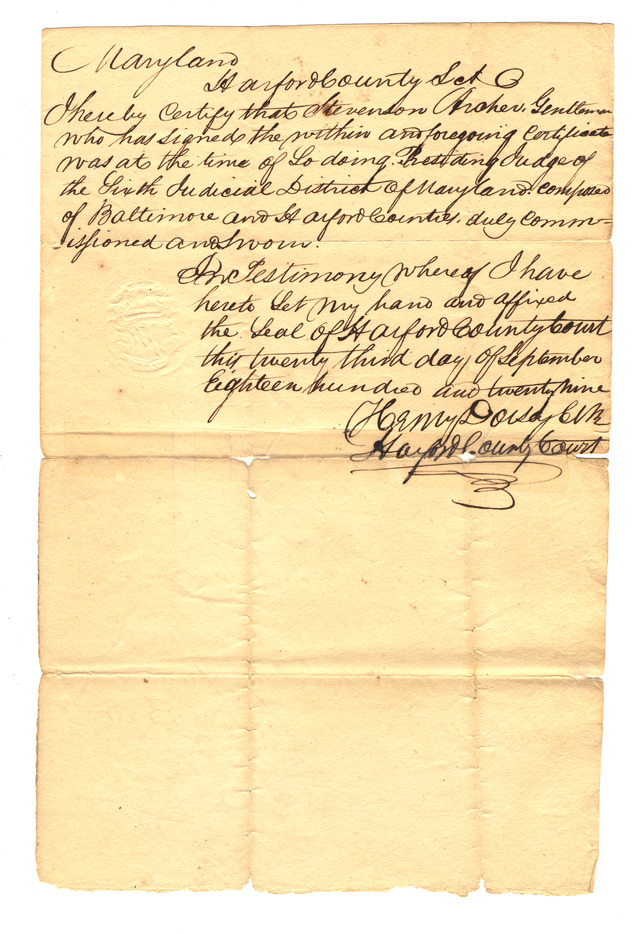 Maryland
Harford County Sct
I hereby Certify that Stevenson Archer. Gentleman
who has signed the within and foregoing Certificate
was at the time of So doing. Presiding Judge of
the Sixth Judicial District of Maryland. composed
of Baltimore and Harford Counties. duly Comm-
issioned and Sworn.
In Testimony whereof I have
hereto Set my hand and affixed
the Seal of Harford County Court
this twenty third day of September
Eighteen hundred and twenty nine
Henry Dorsey Clk
Harford County Court